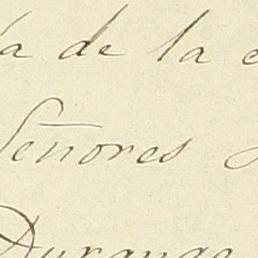 a de la
Señores
Durango